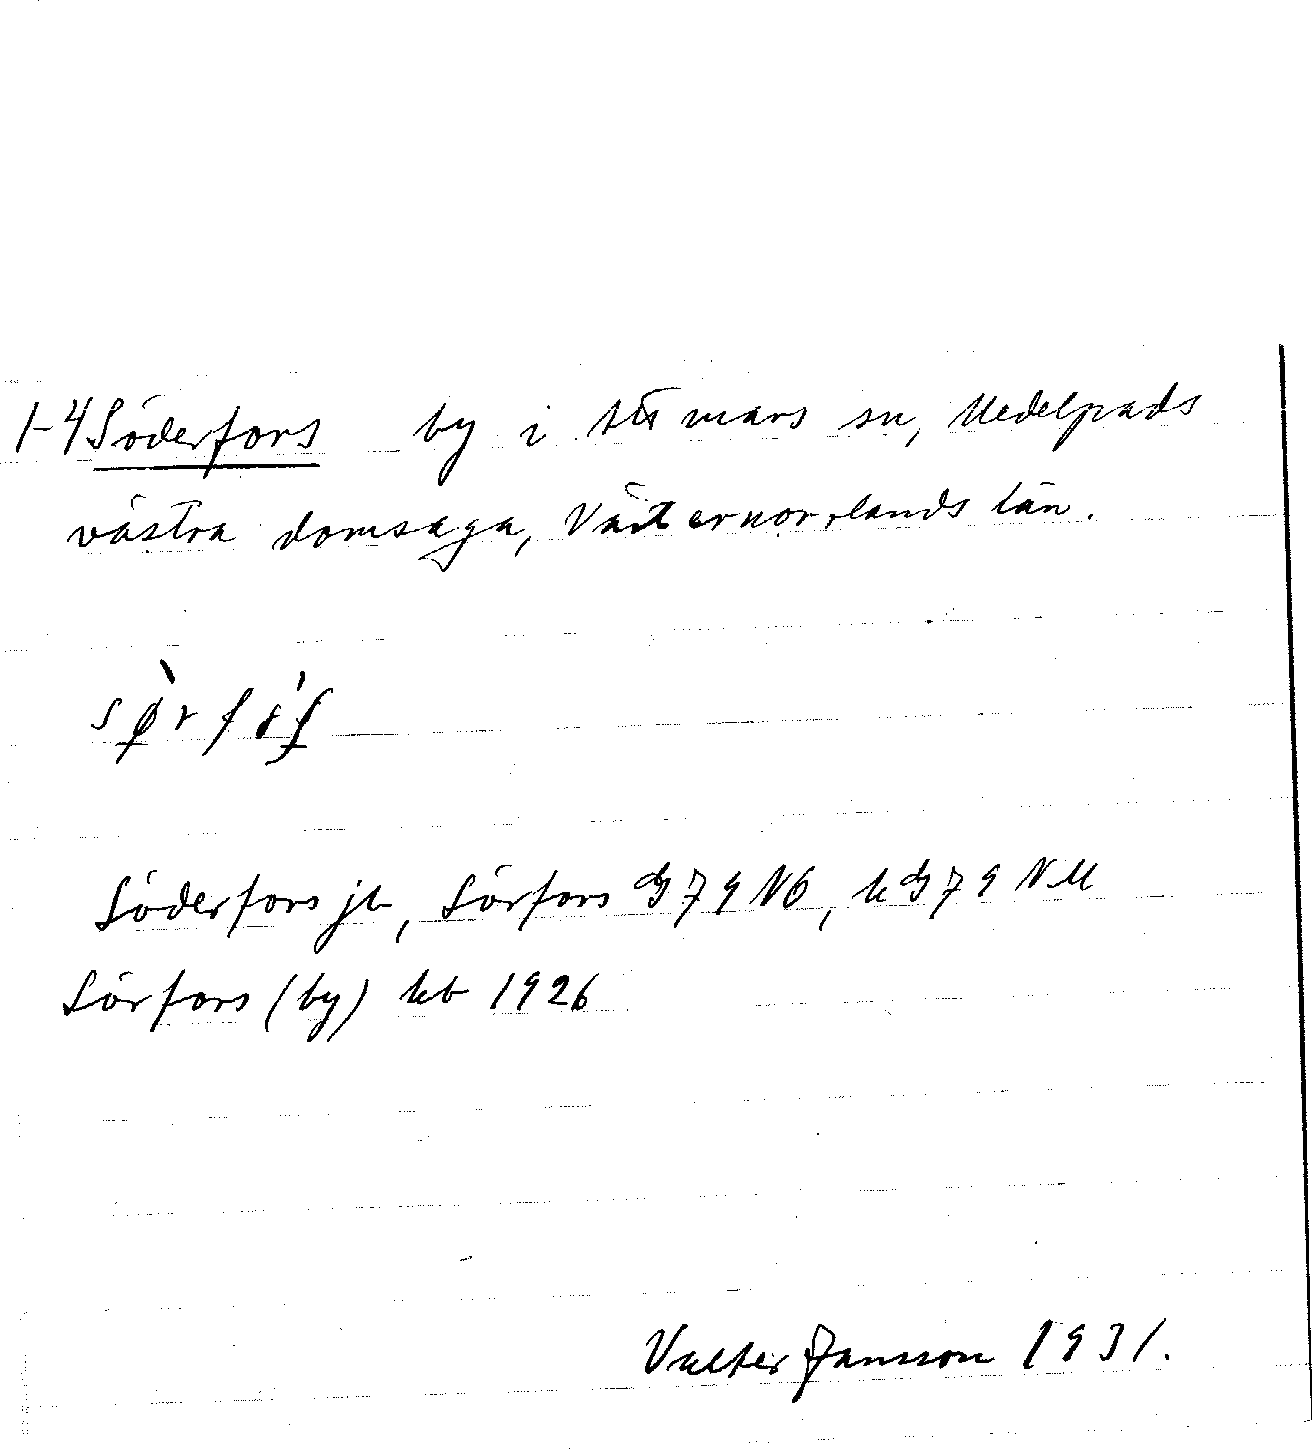 1-4 Söderfors by i Attmars sn, Medelpads
västra domsaga, Västernorrlands län.
Söderfors jb, Sörfors G 79 NO, k G 79 NU
Sörfors (by) kb 1926
Valter Jansson 1931.